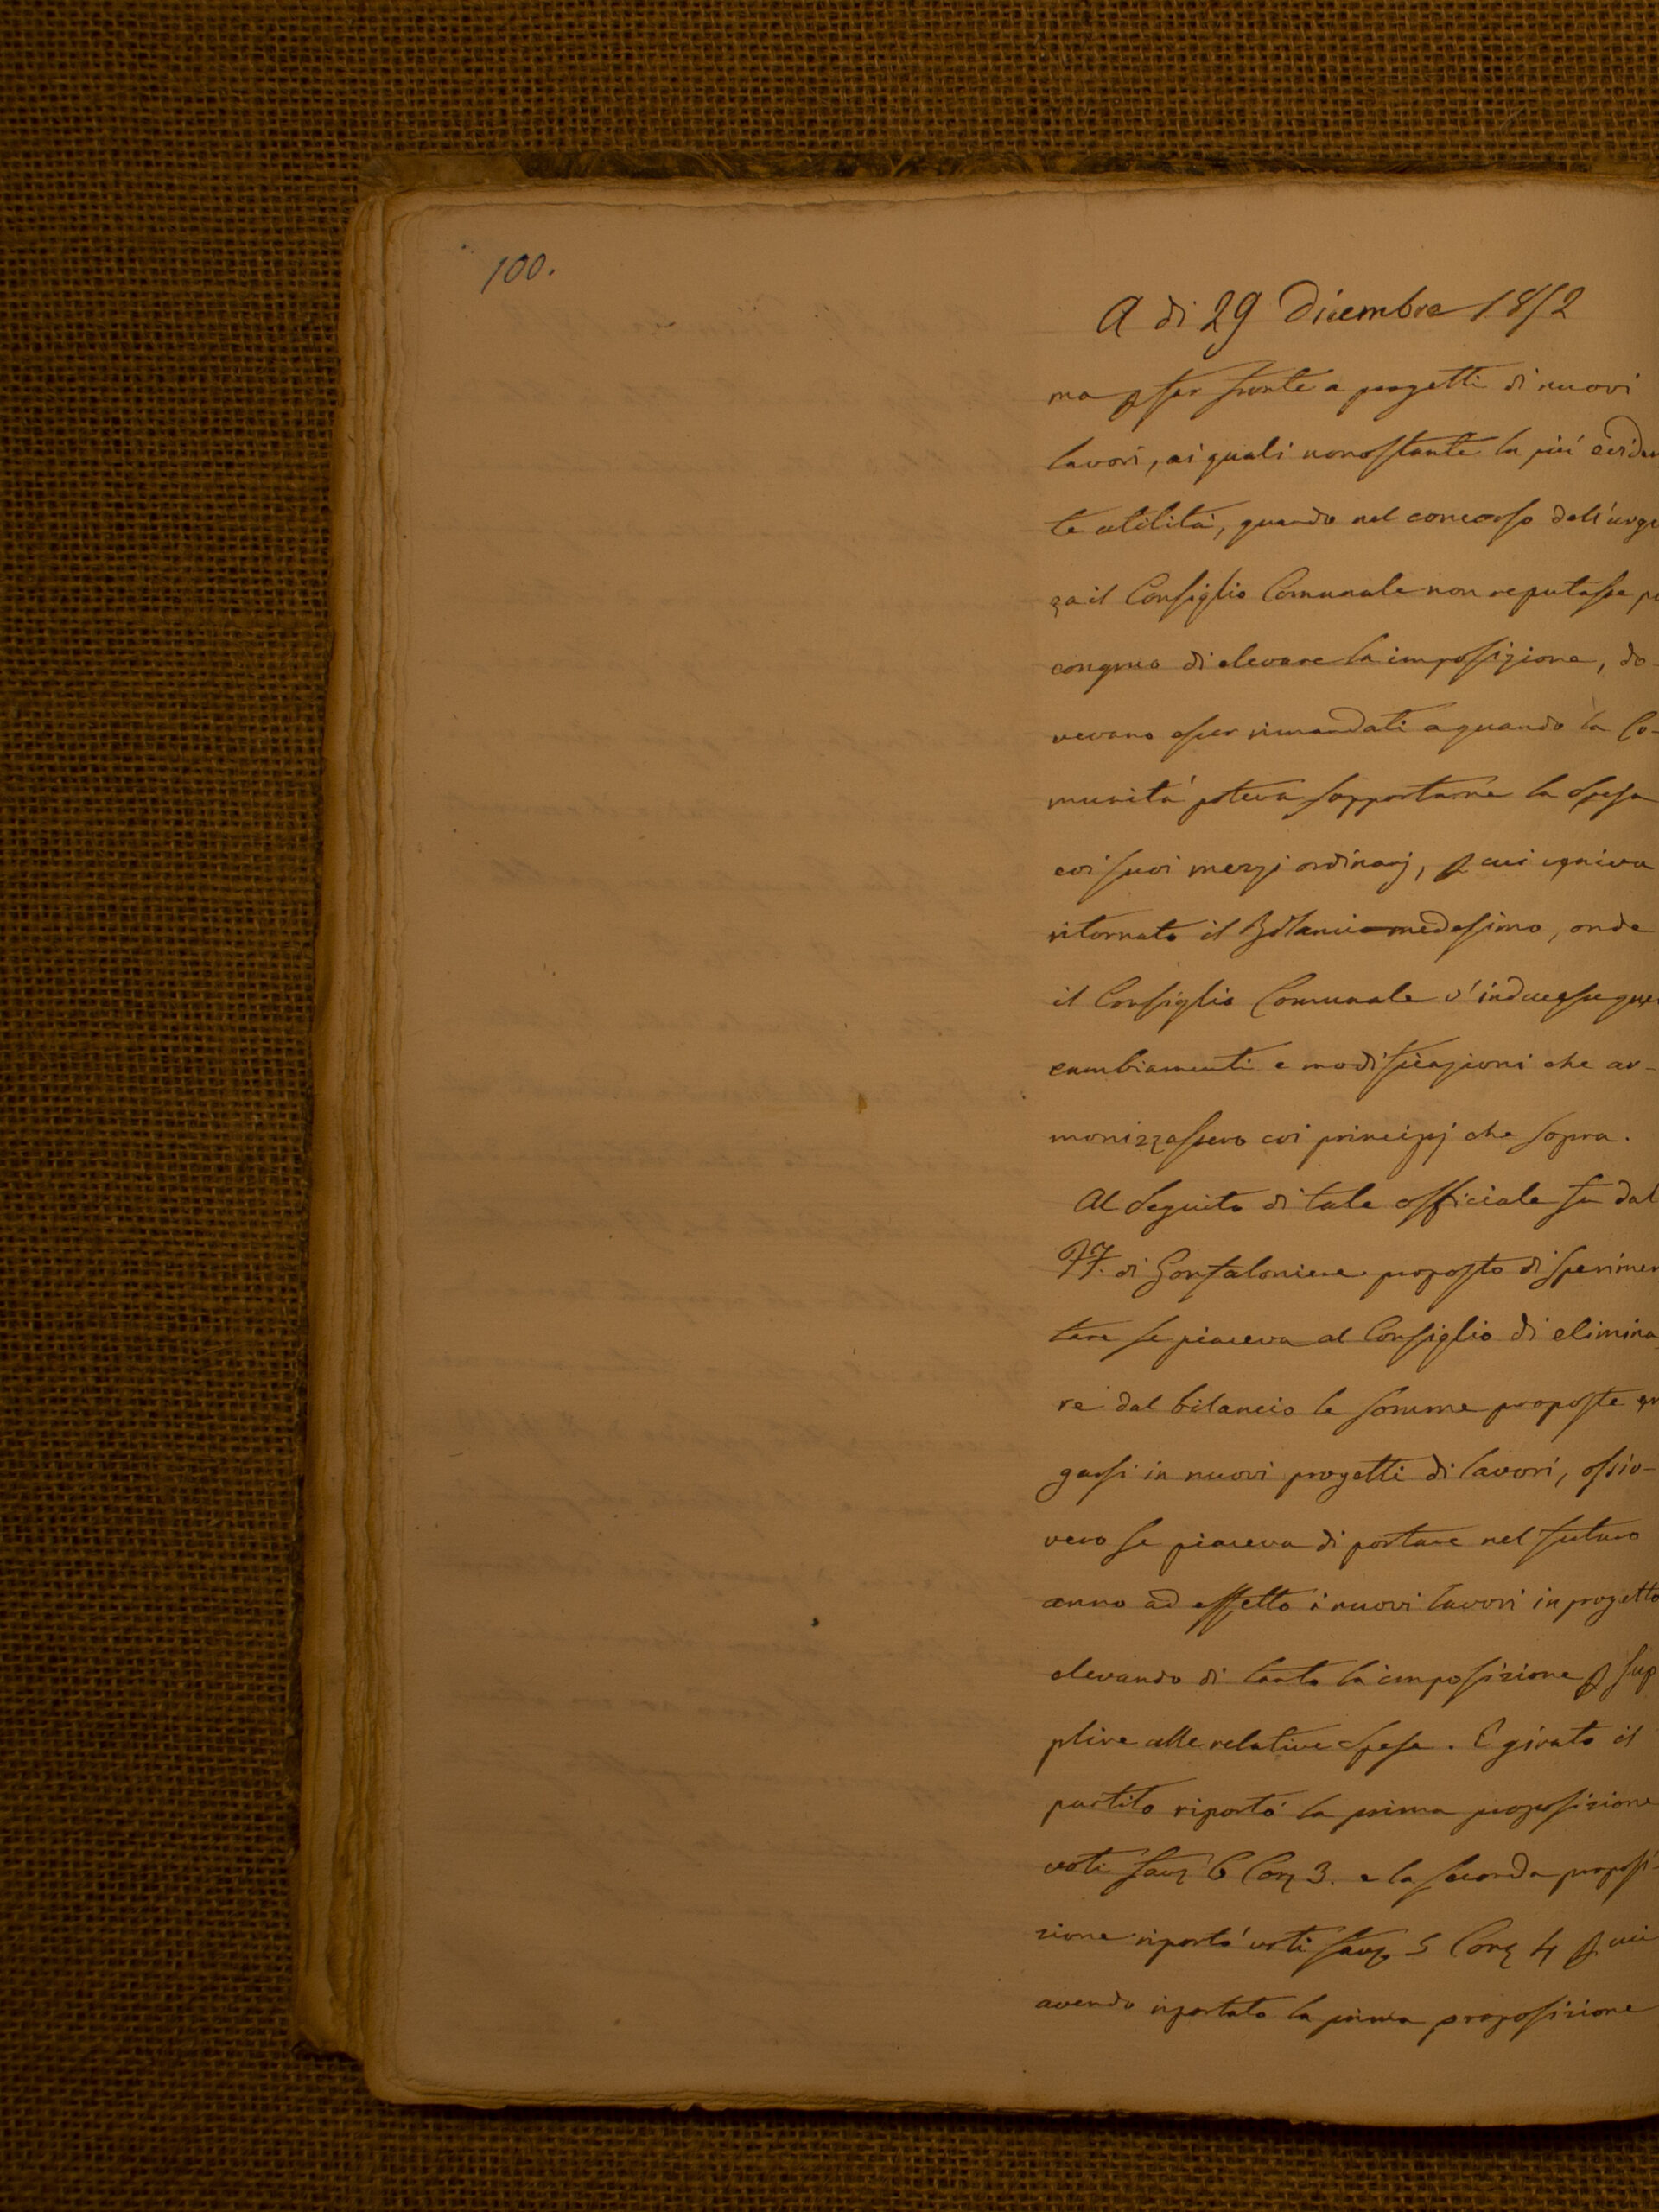 100.
A dì 29 Dicembre 1852
ma p far fronte a progetti di nuovi
lavori, ai quali nonostante la più eviden
te utilità, quando nel concorso dell'urge
za il Consiglio Comunale non reputasse
congruo di elevare la imposizione, do-
vevano esser rimandati a quando la Co-
munità poteva sopportarne la spesa
coi suoi mezzi ordinarj, p cui
ritornato il Bilancio medesimo, onde
il Consiglio Comunale v'inducesse que
cambiamenti e modificazioni che ar-
monizzassero coi principj che sopra.
Al seguito di tale officiale fu dal
FF. di Gonfaloniere proposto di sperimen
tare se piaceva al Consiglio di elimina
re dal bilancio le somme proposte ero
garsi in nuovi progetti di lavori, ossiv-
vero se piaceva di portare nel futuro
anno ad effetto i nuovi lavori in progetto
elevando di tanto la imposizione p sup
plire alle relative spese. E girato il
partito riportò la prima proposizione
voti favi 6 Conj 3. e la seconda proposi-
zione riportò voti favi 5 Conj 4 p cui
avendo riportato la prima proposizione